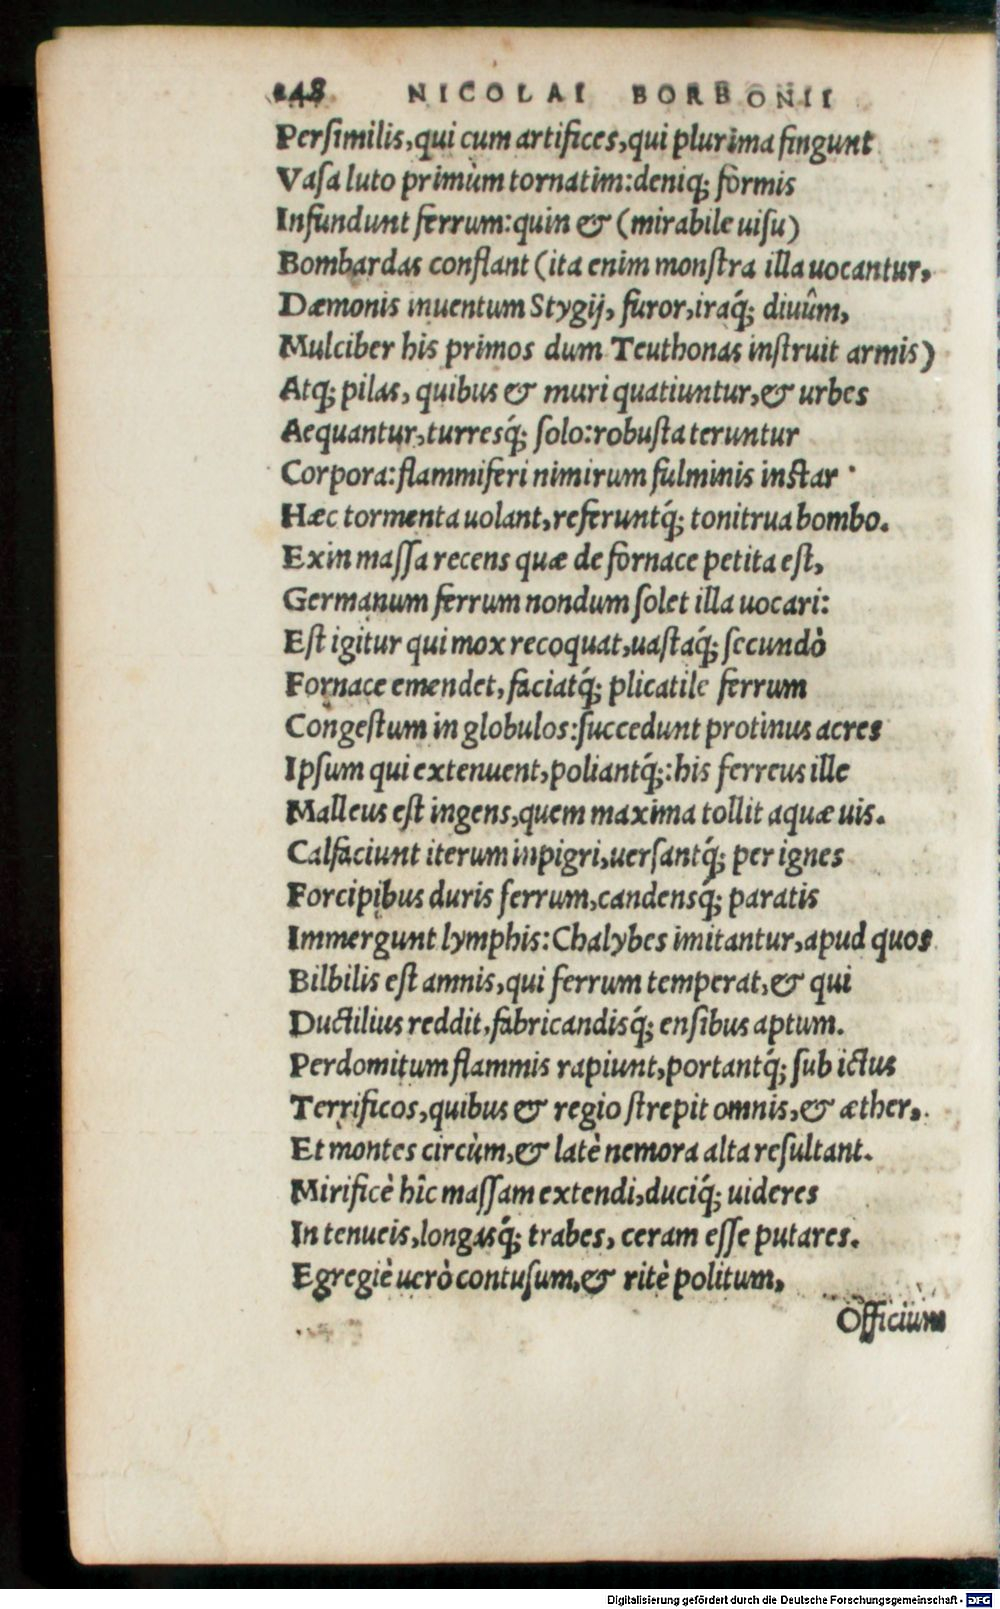 248 NICOLAI BORBONII
Perſimilis, qui cum artifices, qui plurima fingunt
Vaſa luto primùm tornatim: deniq; formis
Infundunt ferrum: quin & (mirabile uiſu)
Bombardas conflant (ita enim monſtra illa uocantur,
Dæmonis inuentum Stygij, furor, iraq́; diuûm,
Mulciber his primos dum Teuthonas inſtruit armis)
Atq; pilas, quibus & muri quatiuntur, & urbes
Aequantur, turresq́; ſolo: robuſta teruntur
Corpora: flammiferi nimirum fulminis inſtar
Hæc tormenta uolant, referuntq́; tonitrua bombo.
Exin maſſa recens quæ de fornace petita eſt,
Germanum ferrum nondum ſolet illa uocari:
Eſt igitur qui mox recoquat, uaſtaq́; ſecundò
Fornace emendet, faciatq́; plicatile ferrum
Congeſtum in globulos: ſuccedunt protinus acres
Ipſum qui extenuent, poliantq́;: his ferreus ille
Malleus eſt ingens, quem maxima tollit aquæ uis.
Calfaciunt iterum inpigri, uerſantq́; per ignes
Forcipibus duris ferrum, candensq́; paratis
Immergunt lymphis: Chalybes imitantur, apud quos
Bilbilis eſt amnis, qui ferrum temperat, & qui
Ductilius reddit, fabricandisq́; enſibus aptum.
Perdomitum flammis rapiunt, portantq́; ſub ictus
Terrificos, quibus & regio ſtrepit omnis, & æther,
Et montes circùm, & latè nemora alta reſultant.
Mirificè hîc maſſam extendi, duciq́; uideres
In tenueis, longasq́; trabes, ceram eſſe putares.
Egregiè uerò contuſum, & ritè politum,
Officium
Digitalisierung gefördert durch die Deutsche Forschungsgemeinschaft - DFG